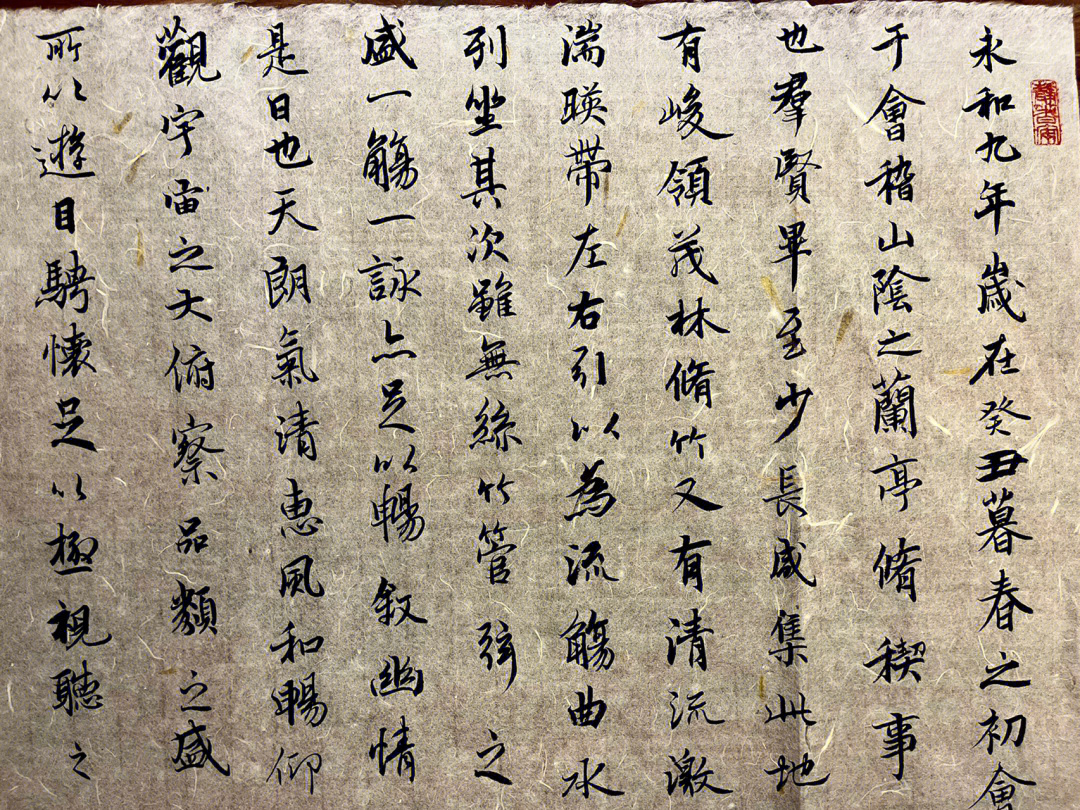 永和九年歲在癸丑暮春之初會
于會稽山陰之蘭亭脩稧事
也羣賢畢至少長咸集此地
有峻領茂林脩竹又有清流激
湍暎帶左右引以為流觴曲水
列坐其次雖無絲竹管弦之
盛一觴一詠亦足以暢敘幽情
是日也天朗氣清惠風和暢仰
觀宇宙之大俯察品類之盛
所以遊目騁懷足以極視聽之